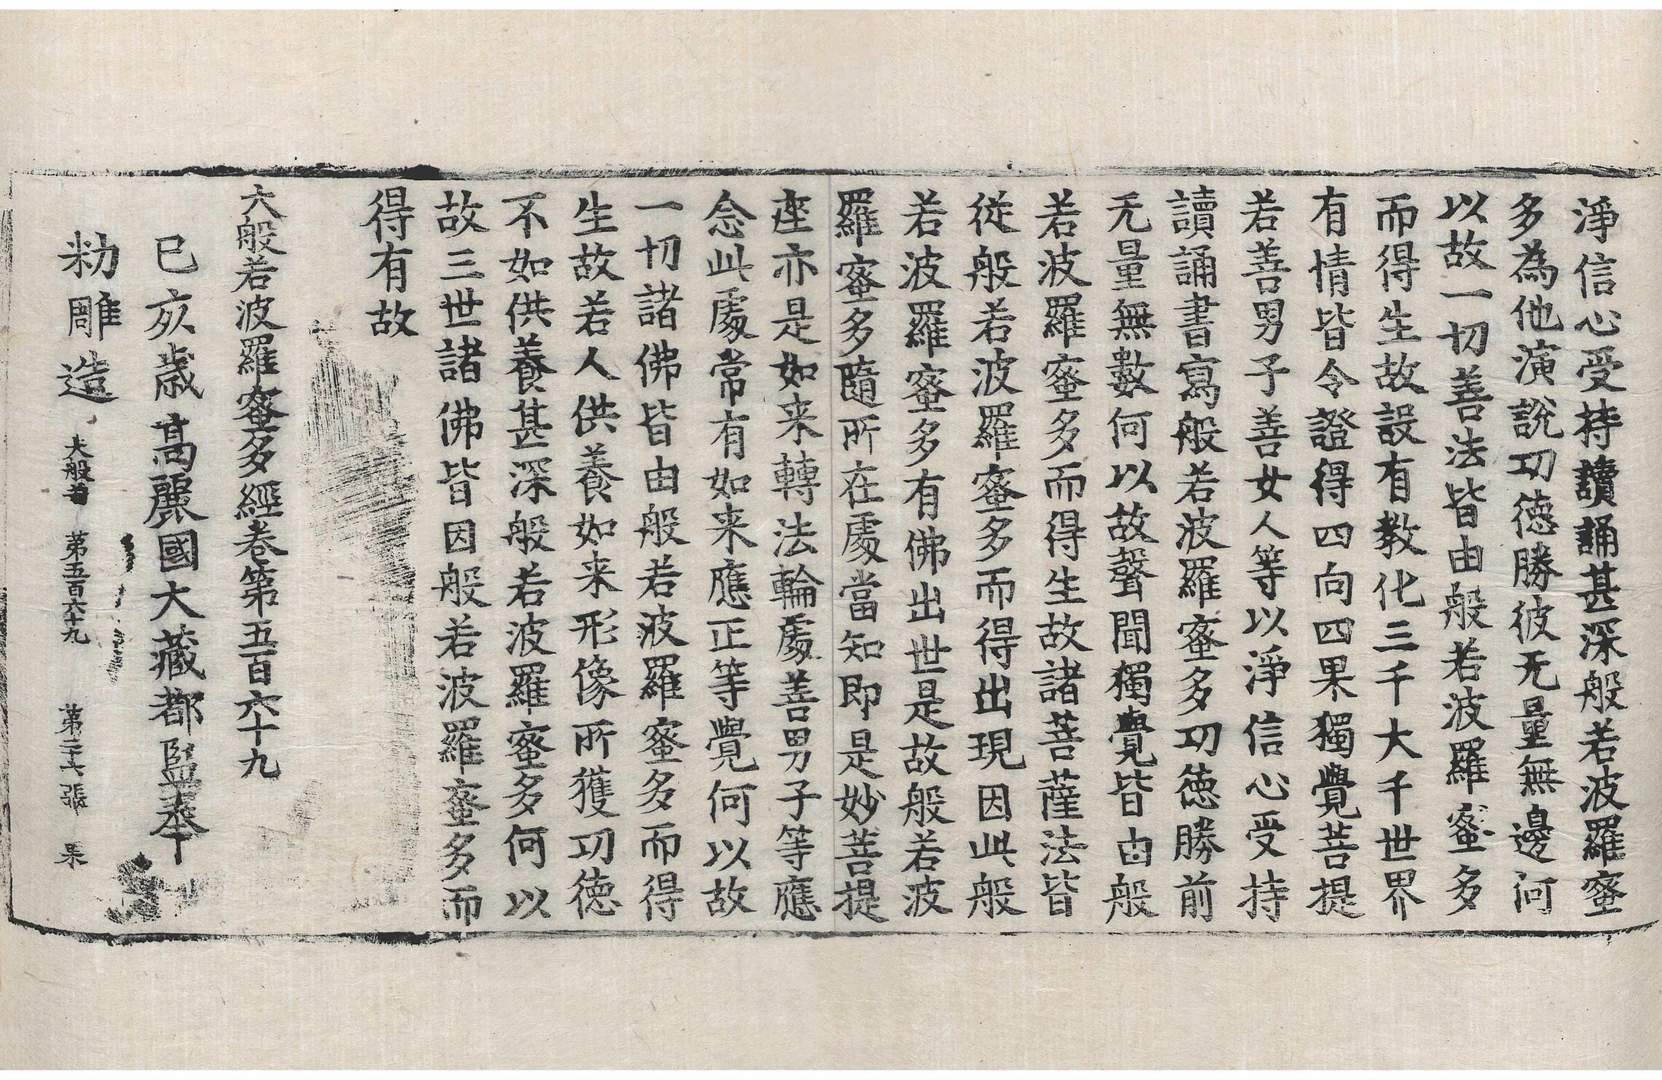 淨信心受持讀誦甚深般若波羅蜜
多為他演說功德勝彼无量無邊何
以故一切善法皆由般若波羅蜜多
而得生故設有教化三千大千世界
有情皆令證得四向四果獨覺菩提
若善男子善女人等以淨信心受持
讀誦書寫般若波羅蜜多功德勝前
无量無數何以故聲聞獨覺皆由般
若波羅蜜多而得生故諸菩薩法皆
從般若波羅蜜多而得出現因此般
若波羅蜜多有佛出世是故般若波
羅蜜多隨所在處當知即是妙菩提
座亦是如来轉法輪處善男子等應
念此處常有如来應正等覺何以故
一切諸佛皆由般若波羅蜜多而得
生故若人供養如来形像所獲功德
不如供養甚深般若波羅蜜多何以
故三世諸佛皆因般若波羅蜜多而
得有故
大般若波羅蜜多經卷第五百六十九
己亥歲高麗國大藏都監奉
勑雕造
大般若 第五百六十九 第二六張 杲